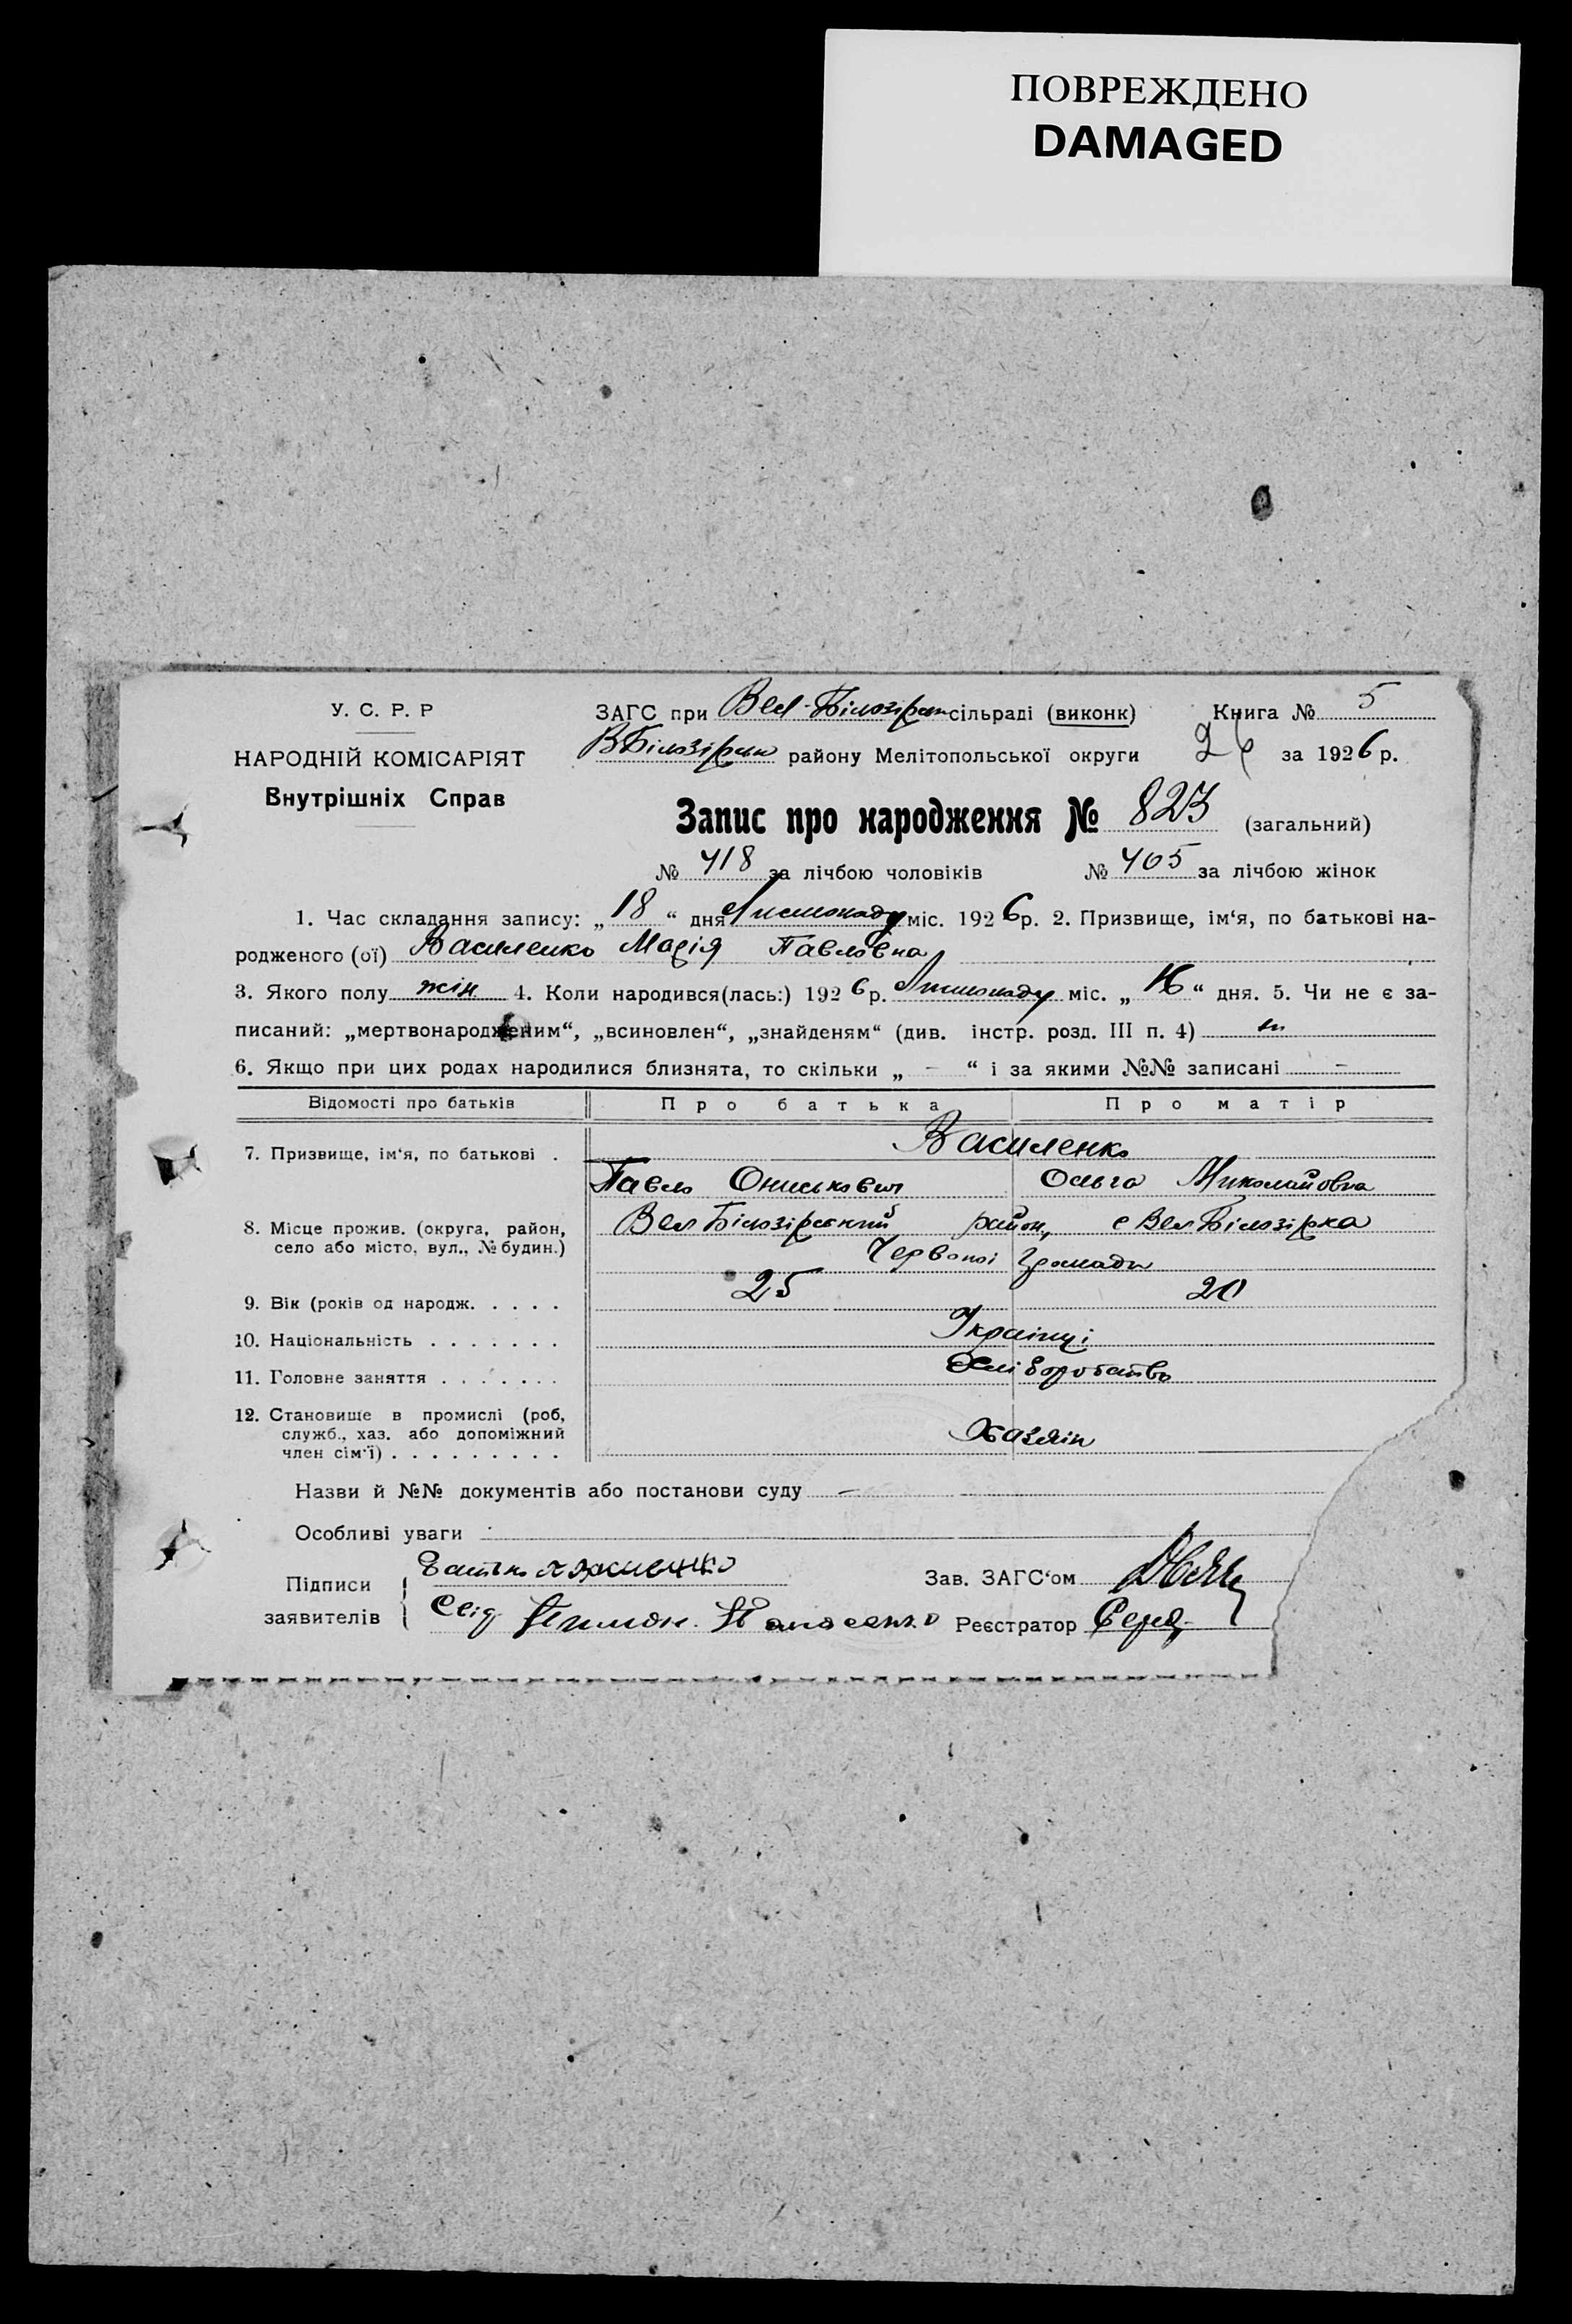 ПОВРЕЖДЕНО
DAMAGED
У. С. Р. Р
НАРОДНІЙ КОМІСАРІЯТ
Внутрішніх Справ
ЗАГС при Вел-Білозірськ сільраді (виконк) Книга № 5
ВБілозірськ району Мелітопольської округи за 1926 р.
Запис про народження № 823 (загальний)
№ 418 за лічбою чоловіків № 405 за лічбою жінок
1. Час складання запису: „18“ дня Листопаду міс. 1926 р. 2. Призвище, ім‘я, по батькові на-
родженого (ої) Василенко Марія Павловна
3. Якого полу жін 4. Коли народився(лась:) 1926 р. Листопаду міс. „16“ дня. 5. Чи не є за-
писаний: „мертвонародженим“, „всиновлен“, „знайденям“ (див. інстр. розд. III п. 4)
6. Якщо при цих родах народилися близнята, то скільки „ - “ і за якими №№ записані -
Відомості про батьків Про батька Про матір
7. Призвище, ім‘я, по батькові . Василенко
Павло Ониськович Ольга Миколайовна
8. Місце прожив. (округа, район, село або місто, вул., № будин.) Вел Білозірський район, с Вел Білозірка
Червоної Громади
9. Вік (років од народж. . . . . 25 20
10. Національність . . . . . . . Українці
11. Головне заняття . . . . . . . Хліборобство
12. Становище в промислі (роб, служб., хаз. або допоміжний член сім‘ї) . . . . . . . . . Хазяїн
Назви й №№ документів або постанови суду -
Особливі уваги
Підписи заявителів Батько Зав. ЗАГС‘ом
Свід Реєстратор